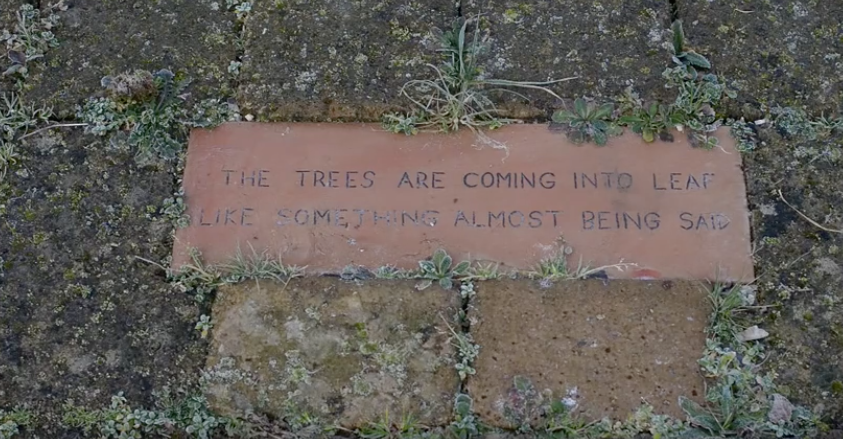 THE TREES ARE COMING INTO LEAF
LIKE SOMETHING ALMOST BEING SAID